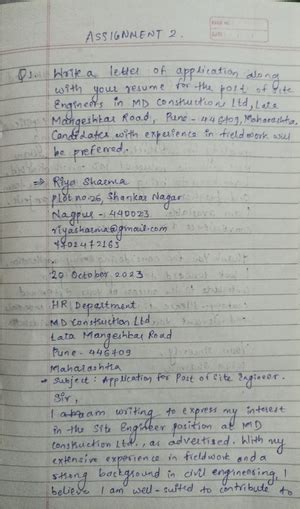 ASSIGNMENT 2.
Q1. Write a letter of application along
with your resume for the post of Site
Engineers in MD Constructions Ltd, Lata
Mangeshkar Road, Pune - 446709, Maharashtra.
Candidates with experience in fieldwork will
be preferred.
→ Riya Sharma
plot no-26, Shankar Nagar
Nagpur - 440023
riyasharma@gmail.com
20 October 2023
HR Department
MD Construction Ltd
Lata Mangeshkar Road
Pune - 446709
Maharashtra
Subject : Application for Post of Site Engineer.
Sir,
I am writing to express my interest
in the Site Engineer position at MD
Construction Ltd., as advertised. With my
extensive experience in fieldwork and a
strong background in civil engineering, I
believe I am well-suited to contribute to